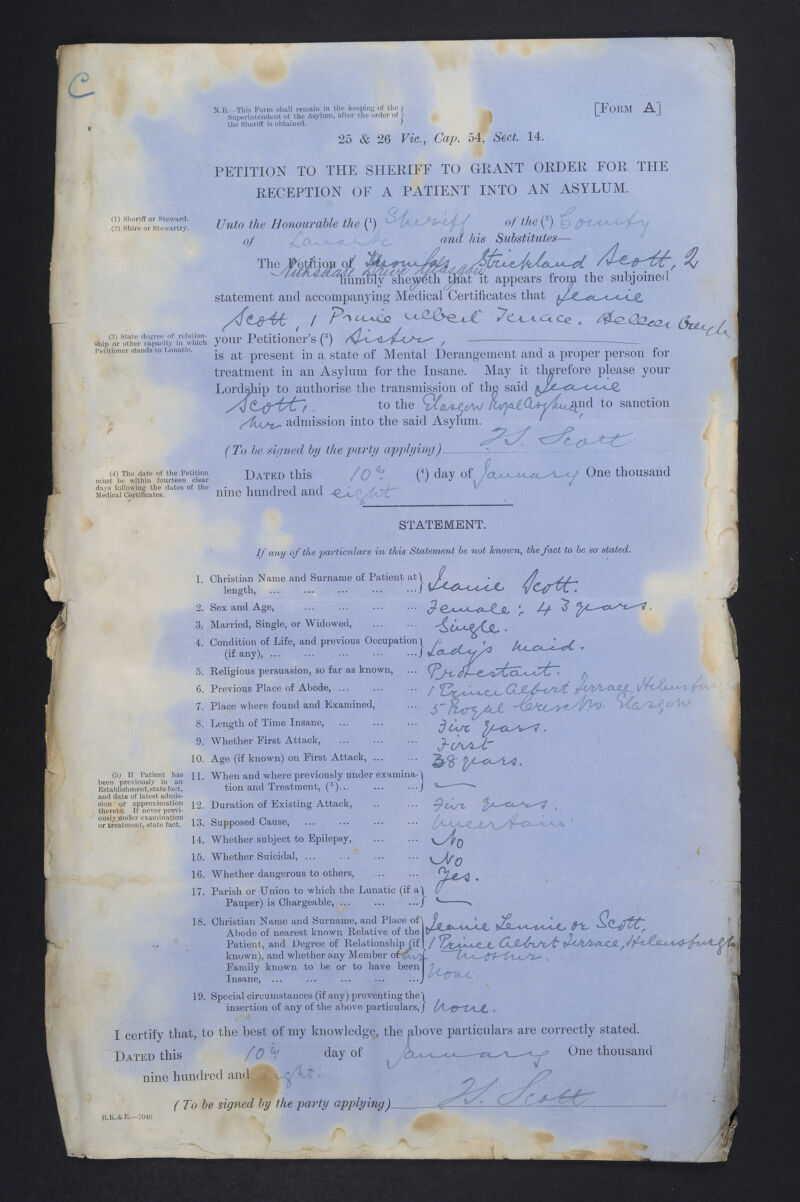 C
N.B.—This Form shall remain in the keeping of the
Superintendent of the Asylum, after the order of
the Sheriff is obtained.
[FORM A]
25 & 26 Vic., Cap. 54, Sect. 14.
PETITION TO THE SHERIFF TO GRANT ORDER FOR THE
RECEPTION OF A PATIENT INTO AN ASYLUM.
(1) Sheriff or Steward.
(2) Shire or Stewartry.
Unto the Honourable the (1) Sheriff of the (2) County
of Lanark and his Substitutes—
The Petition of Thomas Strickland Scott, 2
Nithsdale Drive Glasgow
humbly sheweth that it appears from the subjoined
statement and accompanying Medical Certificates that Jeanie
Scott, 1 Prince Albert Terrace,
(3) State degree of relation-
ship or other capacity in which
Petitioner stands to Lunatic.
your Petitioner's (3) Sister,
is at present in a state of Mental Derangement and a proper person for
treatment in an Asylum for the Insane. May it therefore please your
Lordship to authorise the transmission of the said Jeanie
Scott, to the Glasgow Royal Asylum, and to sanction
her admission into the said Asylum.
(To be signed by the party applying) T.S. Scott
(4) The date of the Petition
must be within fourteen clear
days following the dates of the
Medical Certificates.
DATED this 10th (4) day of January One thousand
nine hundred and eight
STATEMENT.
If any of the particulars in this Statement be not known, the fact to be so stated.
1. Christian Name and Surname of Patient at
length, ... ... ... ... ... Jeanie Scott.
2. Sex and Age, ... ... ... ... Female; 43 years.
3. Married, Single, or Widowed, ... ... Single.
4. Condition of Life, and previous Occupation
(if any), ... ... ... ... ... Lady's maid.
5. Religious persuasion, so far as known, ... Protestant.
6. Previous Place of Abode, ... ... ... 1 Prince Albert Terrace, Helensburgh
7. Place where found and Examined, ... 5 Royal Crescent W. Glasgow
8. Length of Time Insane, ... ... ... Five years.
9. Whether First Attack, ... ... ... First
10. Age (if known) on First Attack, ... ... 38 years.
(5) If Patient has
been previously in an
Establishment, state fact,
and date of latest admis-
sion or approximation
thereto. If never previ-
ously under examination
or treatment, state fact.
11. When and where previously under examina-
tion and Treatment, (5)... ... ... —
12. Duration of Existing Attack, ... ... Five years.
13. Supposed Cause, ... ... ... ... Uncertain.
14. Whether subject to Epilepsy, ... ... No
15. Whether Suicidal, ... ... ... ... No
16. Whether dangerous to others, ... ... Yes.
17. Parish or Union to which the Lunatic (if a
Pauper) is Chargeable, ... ... ... —
18. Christian Name and Surname, and Place of
Abode of nearest known Relative of the
Patient, and Degree of Relationship (if
known), and whether any Member of her
Family known to be or to have been
Insane, ... ... ... ... ...
Jeanie Lennie or Scott,
1 Prince Albert Terrace, Helensburgh
mother.
None.
19. Special circumstances (if any) preventing the
insertion of any of the above particulars, None.
I certify that, to the best of my knowledge, the above particulars are correctly stated.
DATED this 10th day of January One thousand
nine hundred and eight.
(To be signed by the party applying) T.S. Scott
B.K.&E.—7046